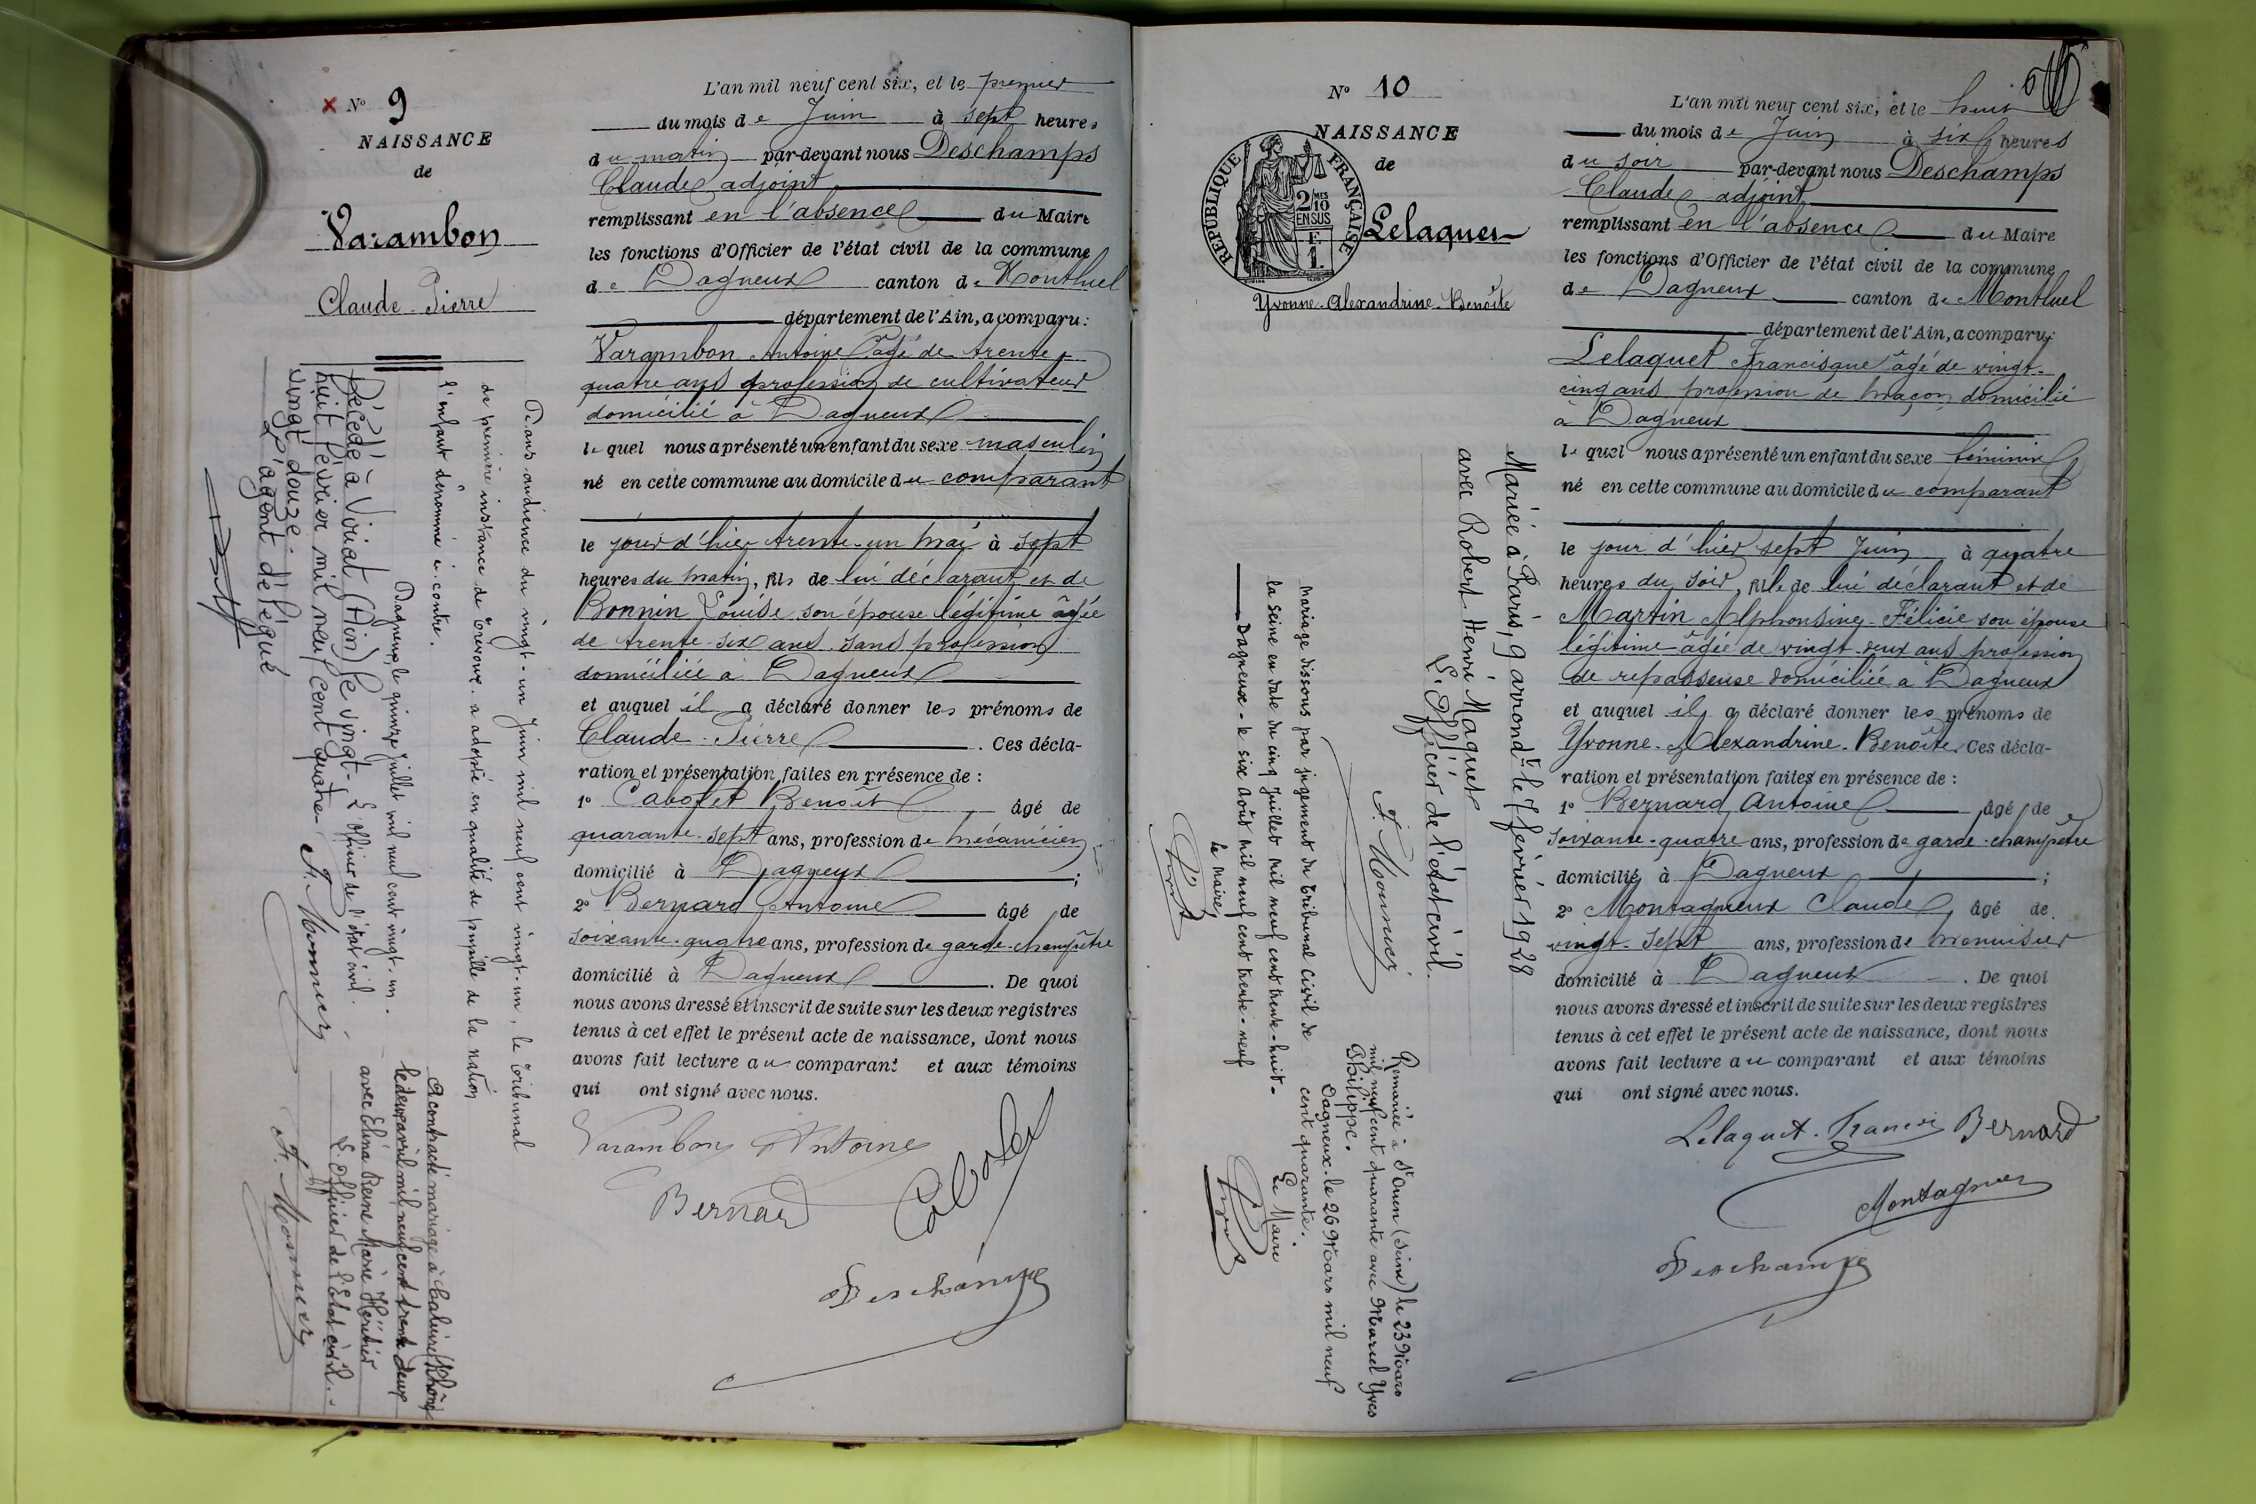 × N° 9
NAISSANCE
de
Varambon
Claude-Pierre
L'an mil neuf cent six, et le premier
du mois de Juin à sept heures
du matin par-devant nous Deschamps
Claude adjoint
remplissant en l'absence du Maire
les fonctions d'Officier de l'état civil de la commune
de Dagneux canton de Montluel
département de l'Ain, a comparu :
Varambon Antoine âgé de trente-
quatre ans profession de cultivateur
domicilié à Dagneux
lequel nous a présenté un enfant du sexe masculin
né en cette commune au domicile du comparant
le jour d'hier trente-un mai à sept
heures du matin, fils de lui déclarant et de
Bonnin Louise son épouse légitime âgée
de trente-six ans sans profession
domiciliée à Dagneux
et auquel il a déclaré donner les prénoms de
Claude-Pierre. Ces décla-
ration et présentation faites en présence de :
1° Cabolet Benoît âgé de
quarante-sept ans, profession de mécanicien
domicilié à Dagneux ;
2° Bernard Antoine âgé de
soixante-quatre ans, profession de garde-champêtre
domicilié à Dagneux. De quoi
nous avons dressé et inscrit de suite sur les deux registres
tenus à cet effet le présent acte de naissance, dont nous
avons fait lecture au comparant et aux témoins
qui ont signé avec nous.
Varambon Antoine
Bernard Cabolet
Deschamps
Dans audience du vingt-un Juin mil neuf cent vingt-un, le Tribunal
de première instance de Trévoux a adopté en qualité de pupille de la nation
l'enfant dénommé ci-contre.
Dagneux, le quinze juillet mil neuf cent vingt-un.
L'officier de l'état civil.
F. Mounier
A contracté mariage à Caluire (Rhône)
le deux avril mil neuf cent trente deux
avec Eléna Reine Marie Héritier
L'Officier de l'Etat civil.
F. Mounier
Décédé à Viriat (Ain) le vingt-
huit février mil neuf cent quatre-
vingt douze.
L'agent délégué
N° 10
NAISSANCE
de
REPUBLIQUE FRANÇAISE
2/10 MES
EN SUS
F.
1.
Lelaquet
Yvonne-Alexandrine-Benoîte
L'an mil neuf cent six, et le huit
du mois de Juin à six heures
du soir par-devant nous Deschamps
Claude adjoint
remplissant en l'absence du Maire
les fonctions d'Officier de l'état civil de la commune
de Dagneux canton de Montluel
département de l'Ain, a comparu :
Lelaquet Francisque âgé de vingt-
cinq ans profession de maçon domicilié
à Dagneux
lequel nous a présenté un enfant du sexe féminin
né en cette commune au domicile du comparant
le jour d'hier sept Juin à quatre
heures du soir, fille de lui déclarant et de
Martin Alphonsine-Félicie son épouse
légitime âgée de vingt-deux ans profession
de repasseuse domiciliée à Dagneux
et auquel il a déclaré donner les prénoms de
Yvonne-Alexandrine-Benoîte. Ces décla-
ration et présentation faites en présence de :
1° Bernard Antoine âgé de
soixante-quatre ans, profession de garde-champêtre
domicilié à Dagneux ;
2° Montagneux Claude âgé de
vingt-sept ans, profession de menuisier
domicilié à Dagneux. De quoi
nous avons dressé et inscrit de suite sur les deux registres
tenus à cet effet le présent acte de naissance, dont nous
avons fait lecture au comparant et aux témoins
qui ont signé avec nous.
Lelaquet Bernard
Montagneux
Deschamps
Mariée à Paris, 9 arrondt le 7 février 1928
avec Robert Henri Maquet
L'Officier de l'état civil.
F. Mounier
Mariage dissous par jugement du Tribunal Civil de
la Seine en date du cinq Juillet mil neuf cent trente-huit-
Dagneux - le six Août mil neuf cent trente-neuf
Le Maire,
Remariée à St Ouen (Seine) le 23 Mars
mil neuf cent quarante avec Marcel Yves
Philippe.
Dagneux - le 26 Mars mil neuf
cent quarante.
Le Maire